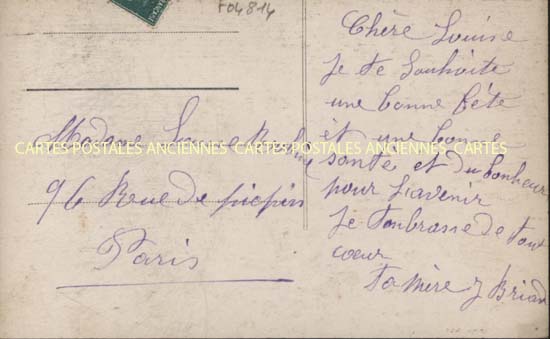 F04814
Chère Louise
Je te Souhaite
une bonne fête
et une bonne
sante et du bonheur
pour L'avenir
Je t'enbrasse de tout
coeur
ta Mère J Briand
Madame
96 Rue de picpus
Paris
CARTES POSTALES ANCIENNES CARTES POSTALES ANCIENNES CARTES